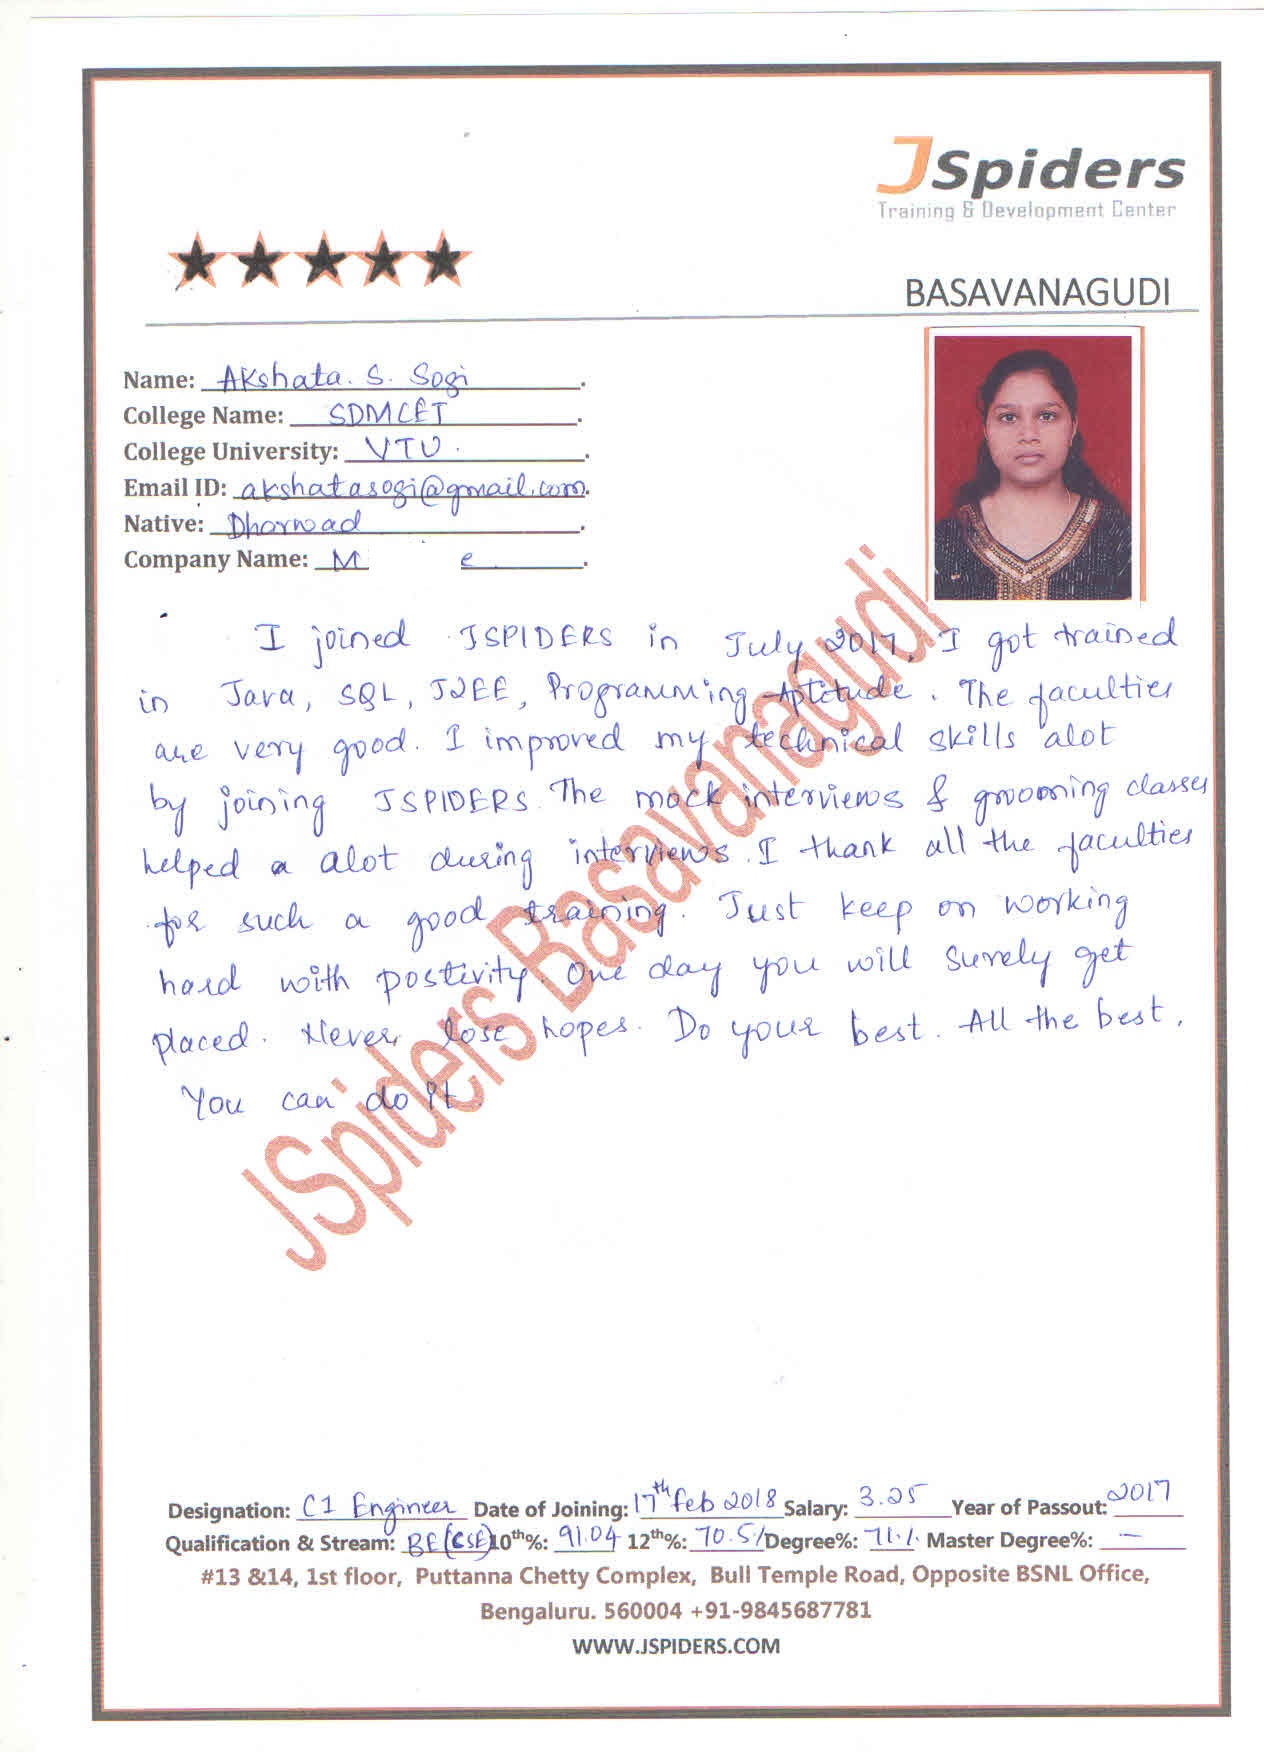 JSpiders
Training & Development Center
BASAVANAGUDI
Name: Akshata. S. Sogi.
College Name: SDMCET.
College University: VTU.
Email ID: akshatasogi@gmail.com.
Native: Dharwad.
Company Name: M e.
I joined JSPIDERS in July 2017, I got trained
in Java, SQL, J2EE, Programming Aptitude. The faculties
are very good. I improved my technical skills alot
by joining JSPIDERS. The mock interviews & grooming classes
helped a alot during interviews. I thank all the faculties
for such a good training. Just keep on working
hard with postivity. One day you will surely get
placed. Never lose hopes. Do your best. All the best.
You can do it.
JSpiders Basavanagudi
Designation: C1 Engineer Date of Joining: 17th Feb 2018 Salary: 3.25 Year of Passout: 2017
Qualification & Stream: BE(CSE) 10th%: 91.04 12th%: 70.5% Degree%: 71.% Master Degree%: —
#13 &14, 1st floor, Puttanna Chetty Complex, Bull Temple Road, Opposite BSNL Office,
Bengaluru. 560004 +91-9845687781
WWW.JSPIDERS.COM